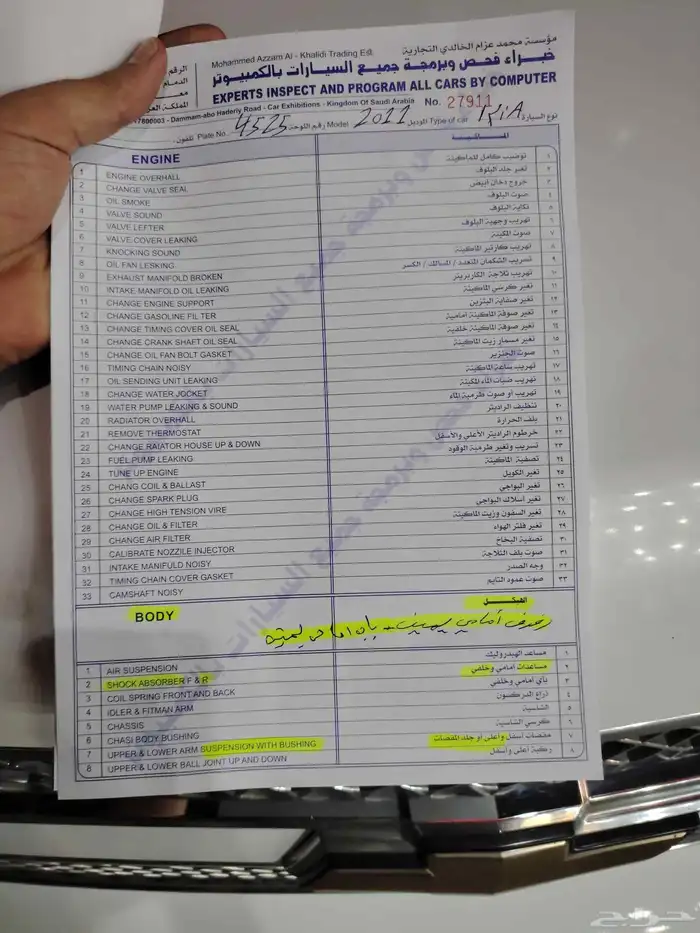 مؤسسة محمد عزام الخالدي التجارية
Mohammed Azzam Al - Khalidi Trading Est.
خبراء فحص وبرمجة جميع السيارات بالكمبيوتر
EXPERTS INSPECT AND PROGRAM ALL CARS BY COMPUTER
Dammam-abo Haderiy Road - Car Exhibitions - Kingdom Of Saudi Arabia No. 27911
نوع السيارة Type of car الموديل Model 2011 رقم اللوحة 4525 Plate No. تلفون
ENGINE الماكينة
1 ENGINE OVERHALL توضيب كامل للماكينة ١
2 CHANGE VALVE SEAL تغير جلد البلوف ٢
3 OIL SMOKE خروج دخان أبيض ٣
4 VALVE SOUND صوت البلوف ٤
5 VALVE LEFTER تكاية البلوف ٥
6 VALVE COVER LEAKING تهريب وجهية البلوف ٦
7 KNOCKING SOUND صوت المكينة ٧
8 OIL FAN LESKING تهريب كارتير الماكينة ٨
9 EXHAUST MANIFOLD BROKEN تسريب الشكمان المتعدد / المسالك / الكسر ٩
10 INTAKE MANIFOLD OIL LEAKING تهريب ثلاجة الكاربريتر ١٠
11 CHANGE ENGINE SUPPORT تغير كرسي الماكينة ١١
12 CHANGE GASOLINE FILTER تغير صفاية البنزين ١٢
13 CHANGE TIMING COVER OIL SEAL تغير صوفة الماكينة امامية ١٣
14 CHANGE CRANK SHAFT OIL SEAL تغير صوفة الماكينة خلفية ١٤
15 CHANGE OIL FAN BOLT GASKET تغير مسمار زيت الماكينة ١٥
16 TIMING CHAIN NOISY صوت الجنزير ١٦
17 OIL SENDING UNIT LEAKING تهريب ساعة الماكينة ١٧
18 CHANGE WATER JOCKET تهريب طبات الماء المكينة ١٨
19 WATER PUMP LEAKING & SOUND تهريب أو صوت طرمبة الماء ١٩
20 RADIATOR OVERHALL تنظيف الراديتر ٢٠
21 REMOVE THERMOSTAT بلف الحرارة ٢١
22 CHANGE RAIATOR HOUSE UP & DOWN خرطوم الراديتر الأعلى والأسفل ٢٢
23 FUEL PUMP LEAKING تسريب وتغير طرمبة الوقود ٢٣
24 TUNE UP ENGINE تصفية الماكينة ٢٤
25 CHANG COIL & BALLAST تغير الكويل ٢٥
26 CHANGE SPARK PLUG تغير البواجي ٢٦
27 CHANGE HIGH TENSION VIRE تغير اسلاك البواجي ٢٧
28 CHANGE OIL & FILTER تغير السفون وزيت الماكينة ٢٨
29 CHANGE AIR FILTER تغير فلتر الهواء ٢٩
30 CALIBRATE NOZZILE INJECTOR تصفية البخاخ ٣٠
31 INTAKE MANIFULD NOISY صوت بلف الثلاجة ٣١
32 TIMING CHAIN COVER GASKET وجه الصدر ٣٢
33 CAMSHAFT NOISY صوت عمود التايم ٣٣
BODY الهيكل
رفرف أمامي يمين
1 AIR SUSPENSION مساعد الهيدروليك ١
2 SHOCK ABSORBER F & R مساعدات امامي وخلفي ٢
3 COIL SPRING FRONT AND BACK ياي امامي وخلفي ٣
4 IDLER & FITMAN ARM ذراع الدركسون ٤
5 CHASSIS الشاسية ٥
6 CHASI BODY BUSHING كرسي الشاسية ٦
7 UPPER & LOWER ARM SUSPENSION WITH BUSHING مقصات أسفل وأعلى أو جلد المقصات ٧
8 UPPER & LOWER BALL JOINT UP AND DOWN ركبة أعلى وأسفل ٨
حراج